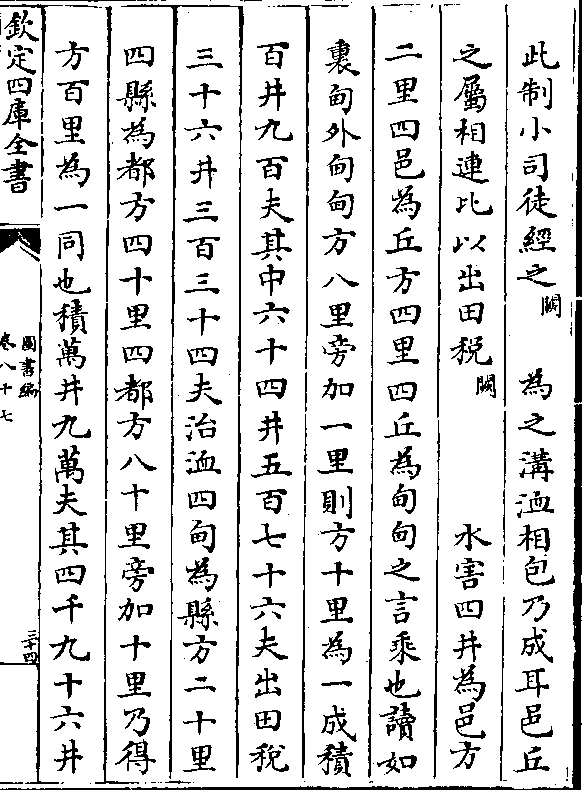 此制小司徒經之闕為之溝洫相包乃成耳邑丘
之屬相連比以出田稅闕水害四井為邑方
二里四邑為丘方四里四丘為甸甸之言乘也讀如
裹甸外甸甸方八里旁加一里則方十里為一成積
百井九百夫其中六十四井五百七十六夫出田稅
三十六井三百三十四夫治洫四甸為縣方二十里
四縣為都方四十里四都方八十里旁加十里乃得
方百里為一同也積萬井九萬夫其四千九十六井
欽定四庫全書
圖書編
卷八十七
三十四